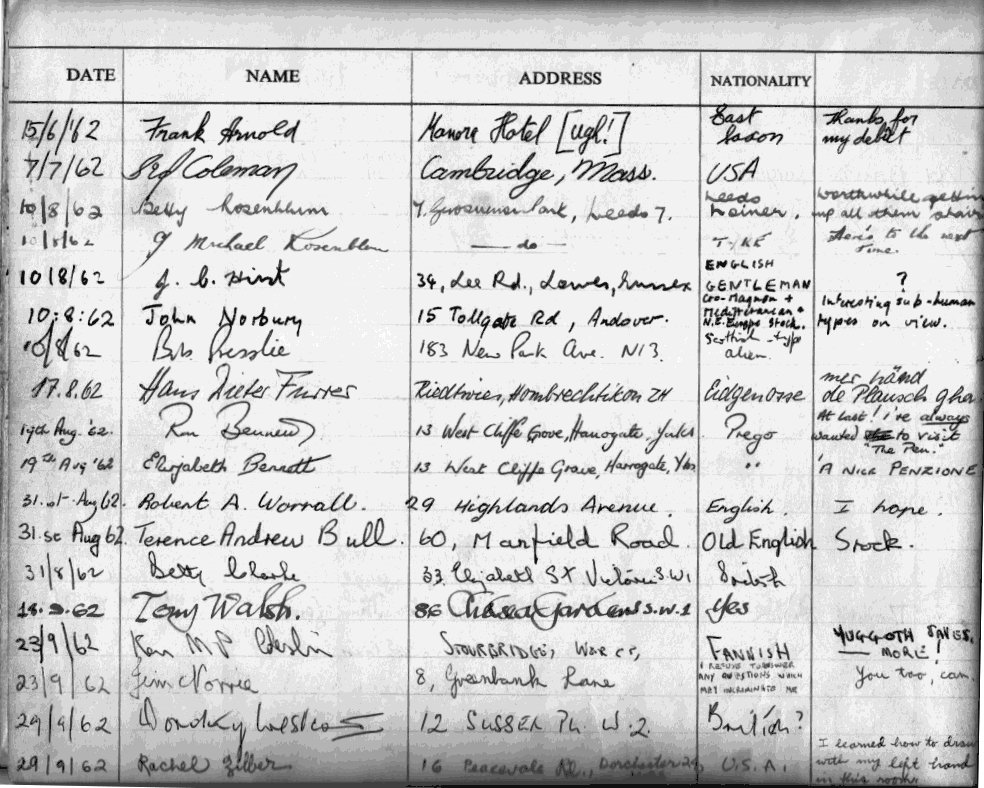 DATE NAME ADDRESS NATIONALITY
15/6/'62 Frank Arnold Manora Hotel [Ugh!] East Saxon Thanks for my debut
7/7/62 Sid Coleman Cambridge, Mass. USA
10/8/62 Betty Rosenblum 7, Grosvenor Park, Leeds 7. Leeds Loiner. Worthwhile getting up all them stairs
10/8/62 J Michael Rosenblum — do — TYKE Here's to the next time.
10/8/62 J. C. Hirst 34, Lee Rd., Lewes, Sussex ENGLISH GENTLEMAN ?
10:8:62 John Norbury 15 Tollgate Rd, Andover. Cro-Magnon + Mediterranean + N.E. Europe Stock. Interesting sub-human types on view.
10/8/62 Bob Presslie 183 New Park Ave. N13. Scottish-type alien.
17.8.62 Hans Dieter Furrer Riedtwies, Hombrechtikon ZH Eidgenosse mer händ de Plausch gha.
19th Aug. '62. Ron Bennett 13 West Cliffe Grove, Harrogate, Yorks Prego At last! I've always wanted to visit "The Pen."
19th Aug '62 Elizabeth Bennett 13 West Cliffe Grove, Harrogate, Yks " 'A NICE PENZIONE
31.st Aug 62. Robert A. Worrall. 29 Highlands Avenue. English. I hope.
31.st Aug 62. Terence Andrew Bull. 60, Manfield Road. Old English Stock.
31/8/62 Betty Clarke 33 Elizabeth St Victoria SW1 British
18.9.62 Tony Walsh. 86 Chelsea Gardens S.W.1 Yes
23/9/62 Ken MP Cheslin STOURBRIDGE, WORCS, FANNISH YUGGOTH SAVES, — MORE!
23/9/62 Jim Norrie 8, Greenbank Lane I REFUSE TO ANSWER ANY QUESTIONS WHICH MAY INCRIMINATE ME You too, can.
29/9/62 Dorothy 12 SUSSEX PL. W.2. British?
29/9/62 Rachel Zilber 16 Peacevale Rd., Dorchester 24, U.S.A. I learned how to draw with my left hand in this room.